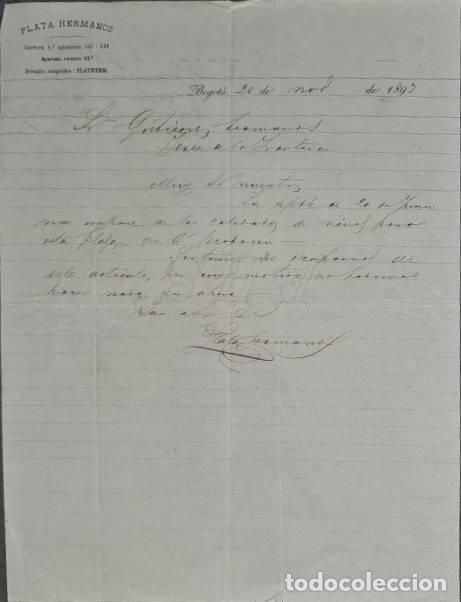 PLATA HERMANOS
Carrera 8.ª números 347 i 349
Apartado número 287
Dirección telegráfica: PLATHERM.
Bogotá, 20 de nov de 1893
Sr Gutierrez hermanos
Jerez de la Frontera
Muy Sr nuestro
La de 20 de Junio
nos impone de las calidades de vinos para
esta plaza que V. producen
de ocuparnos de
este artículo, por cuyo motivo no podremos
hacer nada por ahora
Plata hermanos
todocoleccion